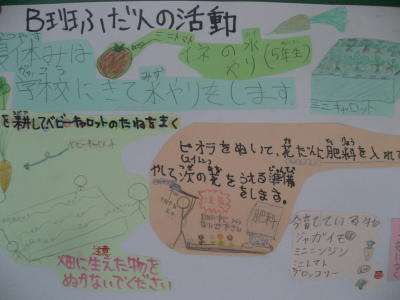 B班ふだんの活動
ミニトマト
イネの水
やり(5年生)
夏休みは
学校にきて水やりをします
ミニキャロット
を耕してベビーキャロットのたねをまく
ベビーキャロット
ビオラをぬいて、花だんに肥料を入れて
やして次の花をうえる準備
をします。
肥料
育てている物
ジャガイモ
ミニニンジン
ミニトマト
ブロッコリー
畑に生えた物を
ぬかないでください